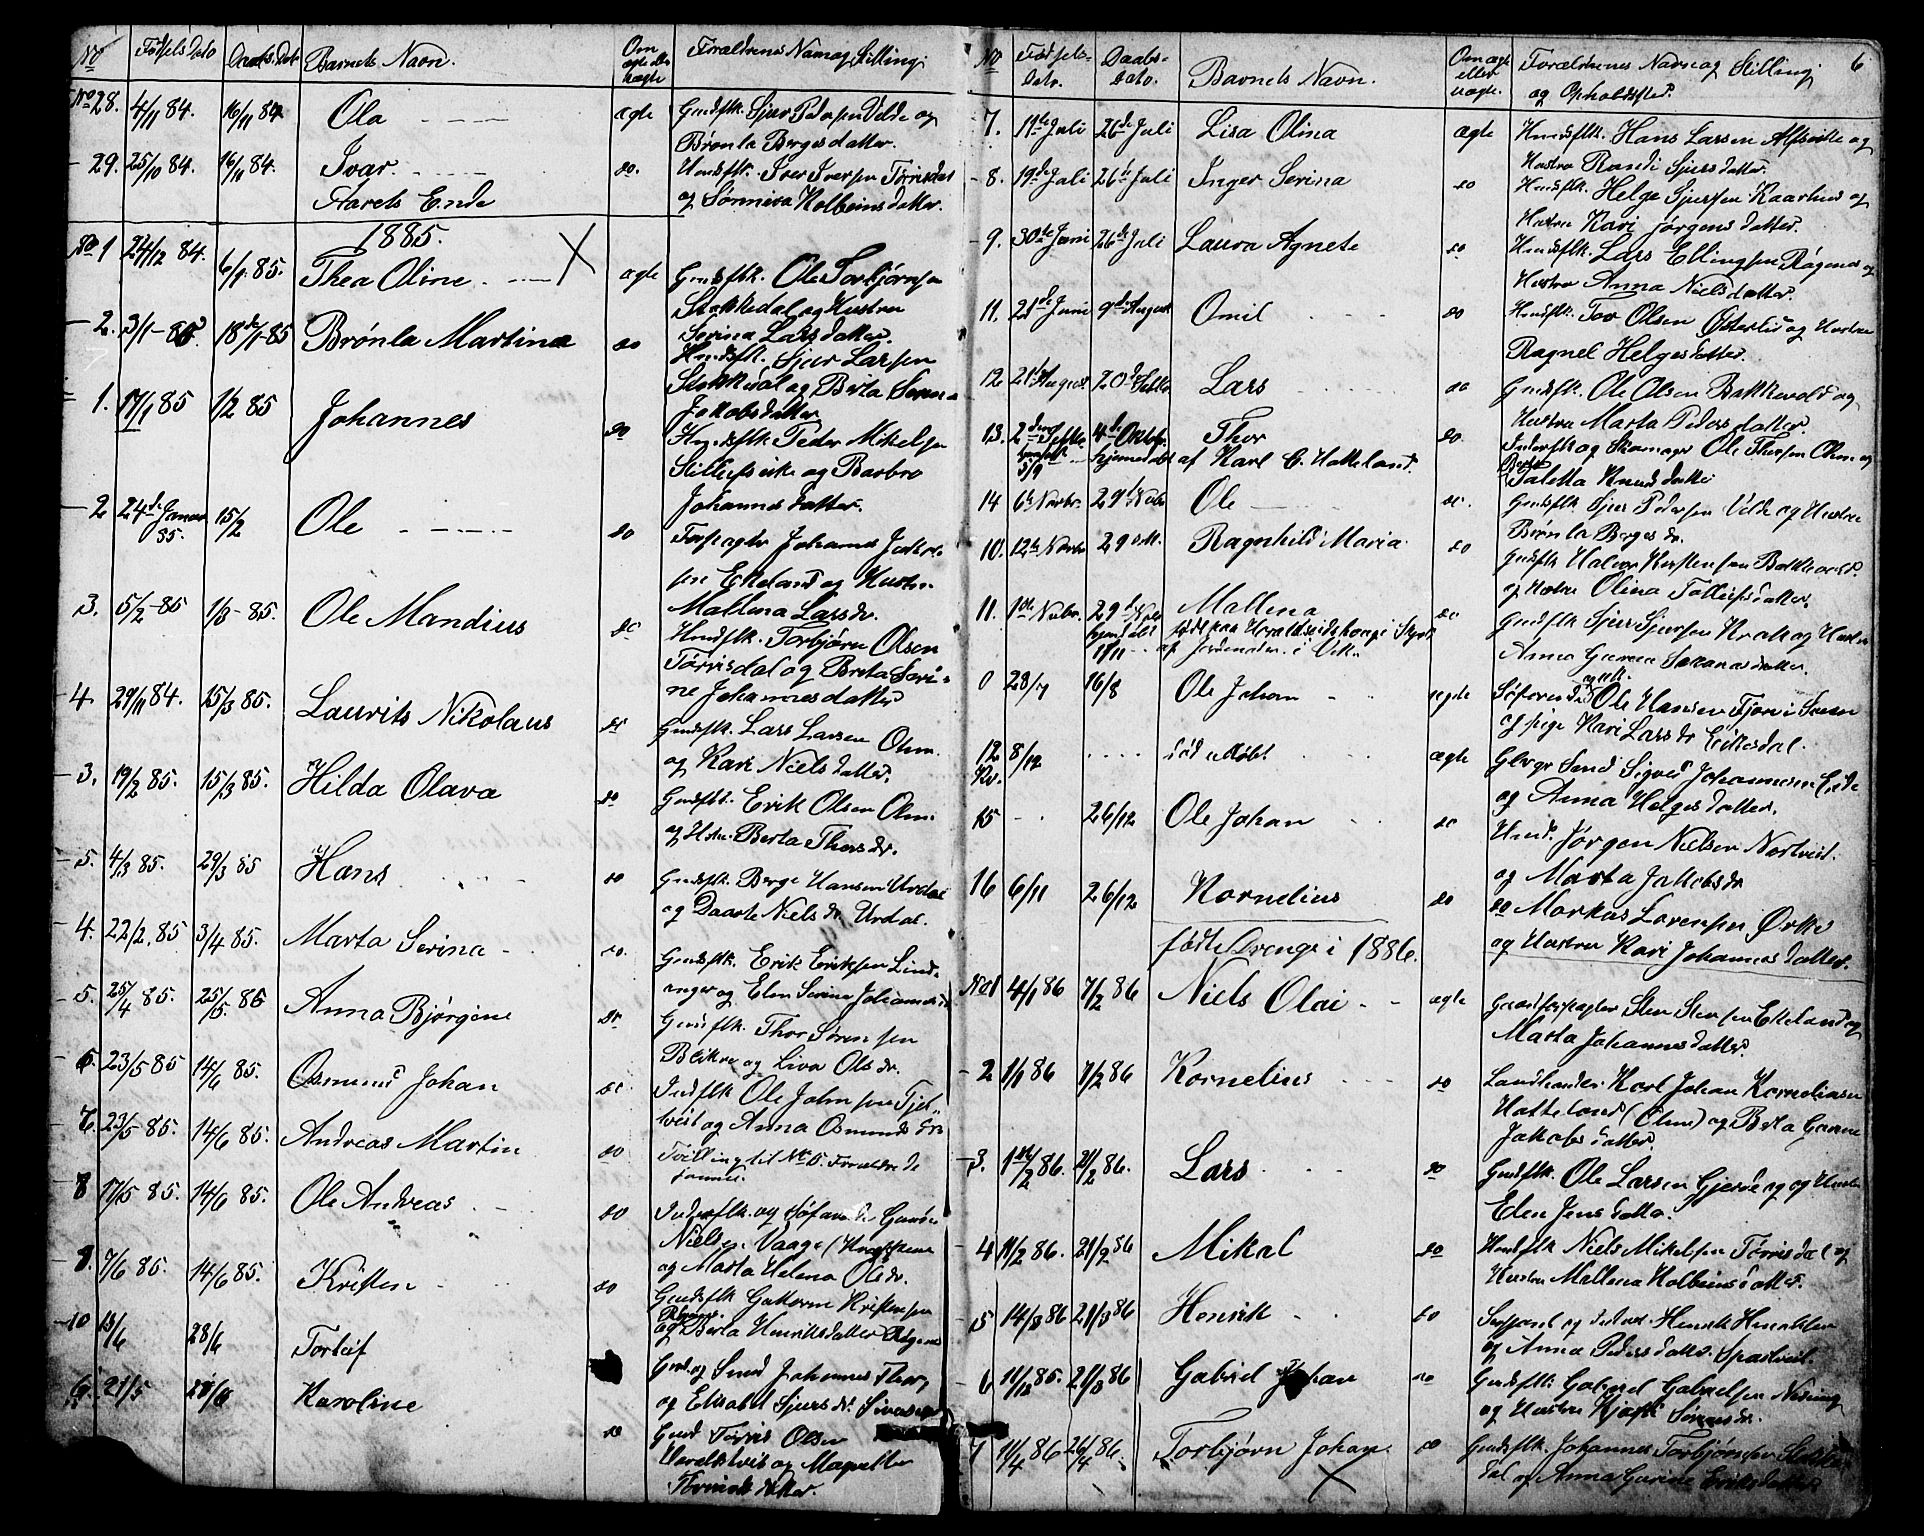 No Fødsels Dato Daabs Dato Barnets Navn. Om ægte eller uægte Forældrenes Navn og Stilling.
No 28. 4/11 84. 16/11 84 Ola ægte Gmdsflk. Sjur Pedersen Velde og
Brønla Bergesdatter.
29. 25/10 84. 16/11 84. Ivar. do. Hmdsflk. Iver Iversen Tørrisdal
og Sønneva Kolbeinsdatter.
Aarets Ende
1885.
No 1 24/12 84. 6/1 85. Thea Oline ægte Gmdsflk. Ole Torbjørnsen
Stokkedal og Hustru
Serina Larsdatter.
2. 3/1-85 18de/1-85 Brønla Martina do Hmdsflk. Sjur Larsen
Stokkedal og Berta Seren-
Jakobsdatter
1. 17/1 85 1/2 85 Johannes do Hmdsflk Peder Mikelsen
og Barbro
Johannesdatter.
2 24de Januar 85. 15/2 Ole do Forpagter Johannes
Ekeland og Hustru
Mallena Larsdr.
3. 5/2-85 1/3-85. Ole Mandius do Hmdflk. Torbjørn Olsen
Tørrisdal og Berta Seri-
ne Johannesdatter
4. 29/11 84. 15/3 85. Laurits Nikolaus do Gmdsflk. Lars Larsen Ohm.
og Kari Nielsdatter.
3. 19/2 85. 15/3 85. Hilda Olava do Gmdsflk. Erik Olsen Ohm.
og Hstru Berta Thorsdr.
5. 4/3 85. 29/3 85 Hans do Gmdsflk. Berge Hansen Urdal
og Daarte Nielsdr Urdal.
4. 22/2. 85 3/4 85. Marta Serina do. Gmdsflk. Erik Eriksen Lind-
og Elen Serina
5. 25/4 85. 25/5. 85 Anna Bjørgine do Gmdflk. Thor Sørensen
Blikra og Liva Olsdr.
6. 23/5 85 14/6 85. Osmund Johan do Indflk Ole Johnsen Tjel-
tveit og Anna Osmundsdr
7. 23/5-85. 14/6 85. Andreas Martin do Tvilling til No 6. Forældre de
samme.
8 17/5 85. 14/6 85. Ole Andreas do Inderflk. og Søfarende
Nielsen Vaage
og Marta Helena Olsdr.
9. 7/6 85. 14/6 85. Kristen do Gmdsflk Guttorm Kristensen
og Berta Henriksdatter
10 13/6 28/6 Torleif Gmd. og Smed Johannes
og Elisabet Sjursdr.
6. 21/5 28/6 Karoline do Gmd Tørris Olsen
og
datter.
No Fødsels-Dato. Daabs-Dato. Barnets Navn. Om ægte eller uægte. Forældrenes Navne og Stilling 6
og Opholdssted.
7. 19de Juli 26de Juli Lisa Olina ægte Hmdsflk. Hans Larsen Alfsvike og
Hustru Randi Sjursdatter.
8. 19de Juli 26de Juli Inger Serina do Hmdsflk. Helge Sjursen Kaarhus og
Hustru Kari Jørgensdatter.
9. 30te Juni 26de Juli Laura Agnete do Hmdsflk. Lars Ellingsen Røgenes og
Hustru Anna Nielsdatter.
11. 21de Juni 9de August Omil do Hmdsflk. Tor Olsen Østerlid og Hustru
Ragnel Helgesdatter.
12 21de August 20de Septbr Lars do Gmdsflk. Ole Olsen Bakkevold og
Hustru Marta Pedersdatter.
13. 2den Septbr 4de Oktbr. Thor do. Inderflk og Skomager Ole Thorsen Ohm og
hjemdøbt 5/9 hjemmedøbt af Karl C. Hatteland. Taletta Knudsdatter
14 6te Novbr. 29de Novbr Ole do. Gmdsflk Sjur Pedersen Velde og Hustru
Brønla Bergesdr.
10. 12te Novbr 29 Ragnhild Maria do Gmdsflk Halvor Kristensen Bakkevold
og Hustru Olina Tolleifsdatter.
11. 1ste Novbr. 29de Novbr Mallena do Gmdsflk Sjur Sjursen Krak og Hustru
hjemdøbt 11/11 af Jordmoder i Vik Anna Gurina datter.
0 28/7 16/8 Ole Johan uegte Søfarende Ole Hansen
og pige Kari Larsdr Eriksdal.
12 Kv. 8/12 .... død udøbt ægte Gbrgr Smed Sigvald Johannesen Eide
og Anna Helgesdatter.
15 - . 26/12 Ole Johan do Hmd. Jørgen Nielsen Nortveit.
og Marta Jakobsdr
16 6/11 26/12 Kornelius do do Markus Larensen Ørke
og Hustru Kari Johannesdatter.
fødte Drenge i 1886.
No 1 4/1 86 7/2 86 Niels Olai ægte Gaardforpagter Sten Stensen Ekeland og
Marta Johannesdatter.
2 1/1 86 7/2 86 Kornelius do Landhandler Karl Johan Korneliusen
Hatteland (Ohm) og Berta Gurina
Jakobsdatter.
3. 1ste/2 86. 21/2 86. Lars do Gmdsflk. Ole Larsen Gjerde og Hustru
Elen Jensdatter.
4 11/2 86. 21/2 86 Mikal do Hmdsflk Niels Mikelsen Tørrisdal og
Hustru Mallena Kolbeinsdatter.
5 14/3 86 21/3 86 Henrik do Henrik Henriksen
og Anna Pedersdatter.
6 11/12 85. 21/3 86 Gabriel Johan do Gmdsflk: Gabriel Gabrielsen
og Hustru Sørensdr.
7 11/4 86 26/4 86. Torbjørn Johan do Gmdsflk. Johannes Torbjørnsen Stokke-
dal og Anna Gurine Eriksdatter